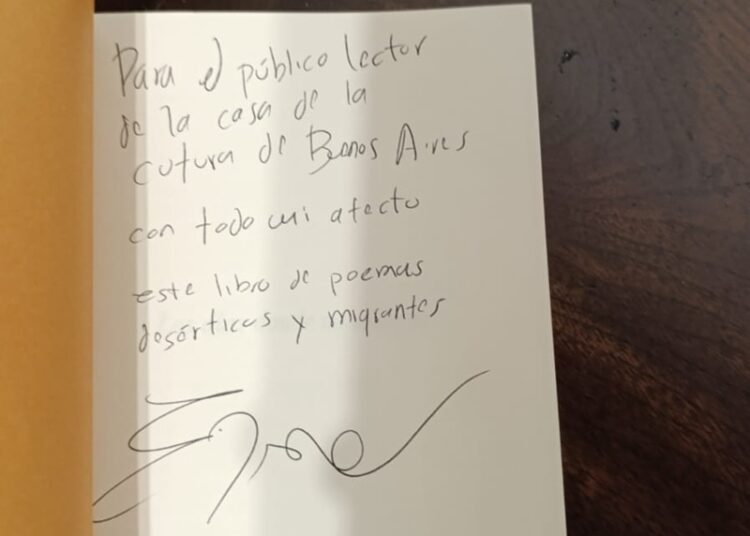 Para el público lector
de la casa de la
cutura de Buenos Aires
con todo mi afecto
este libro de poemas
desérticos y migrantes